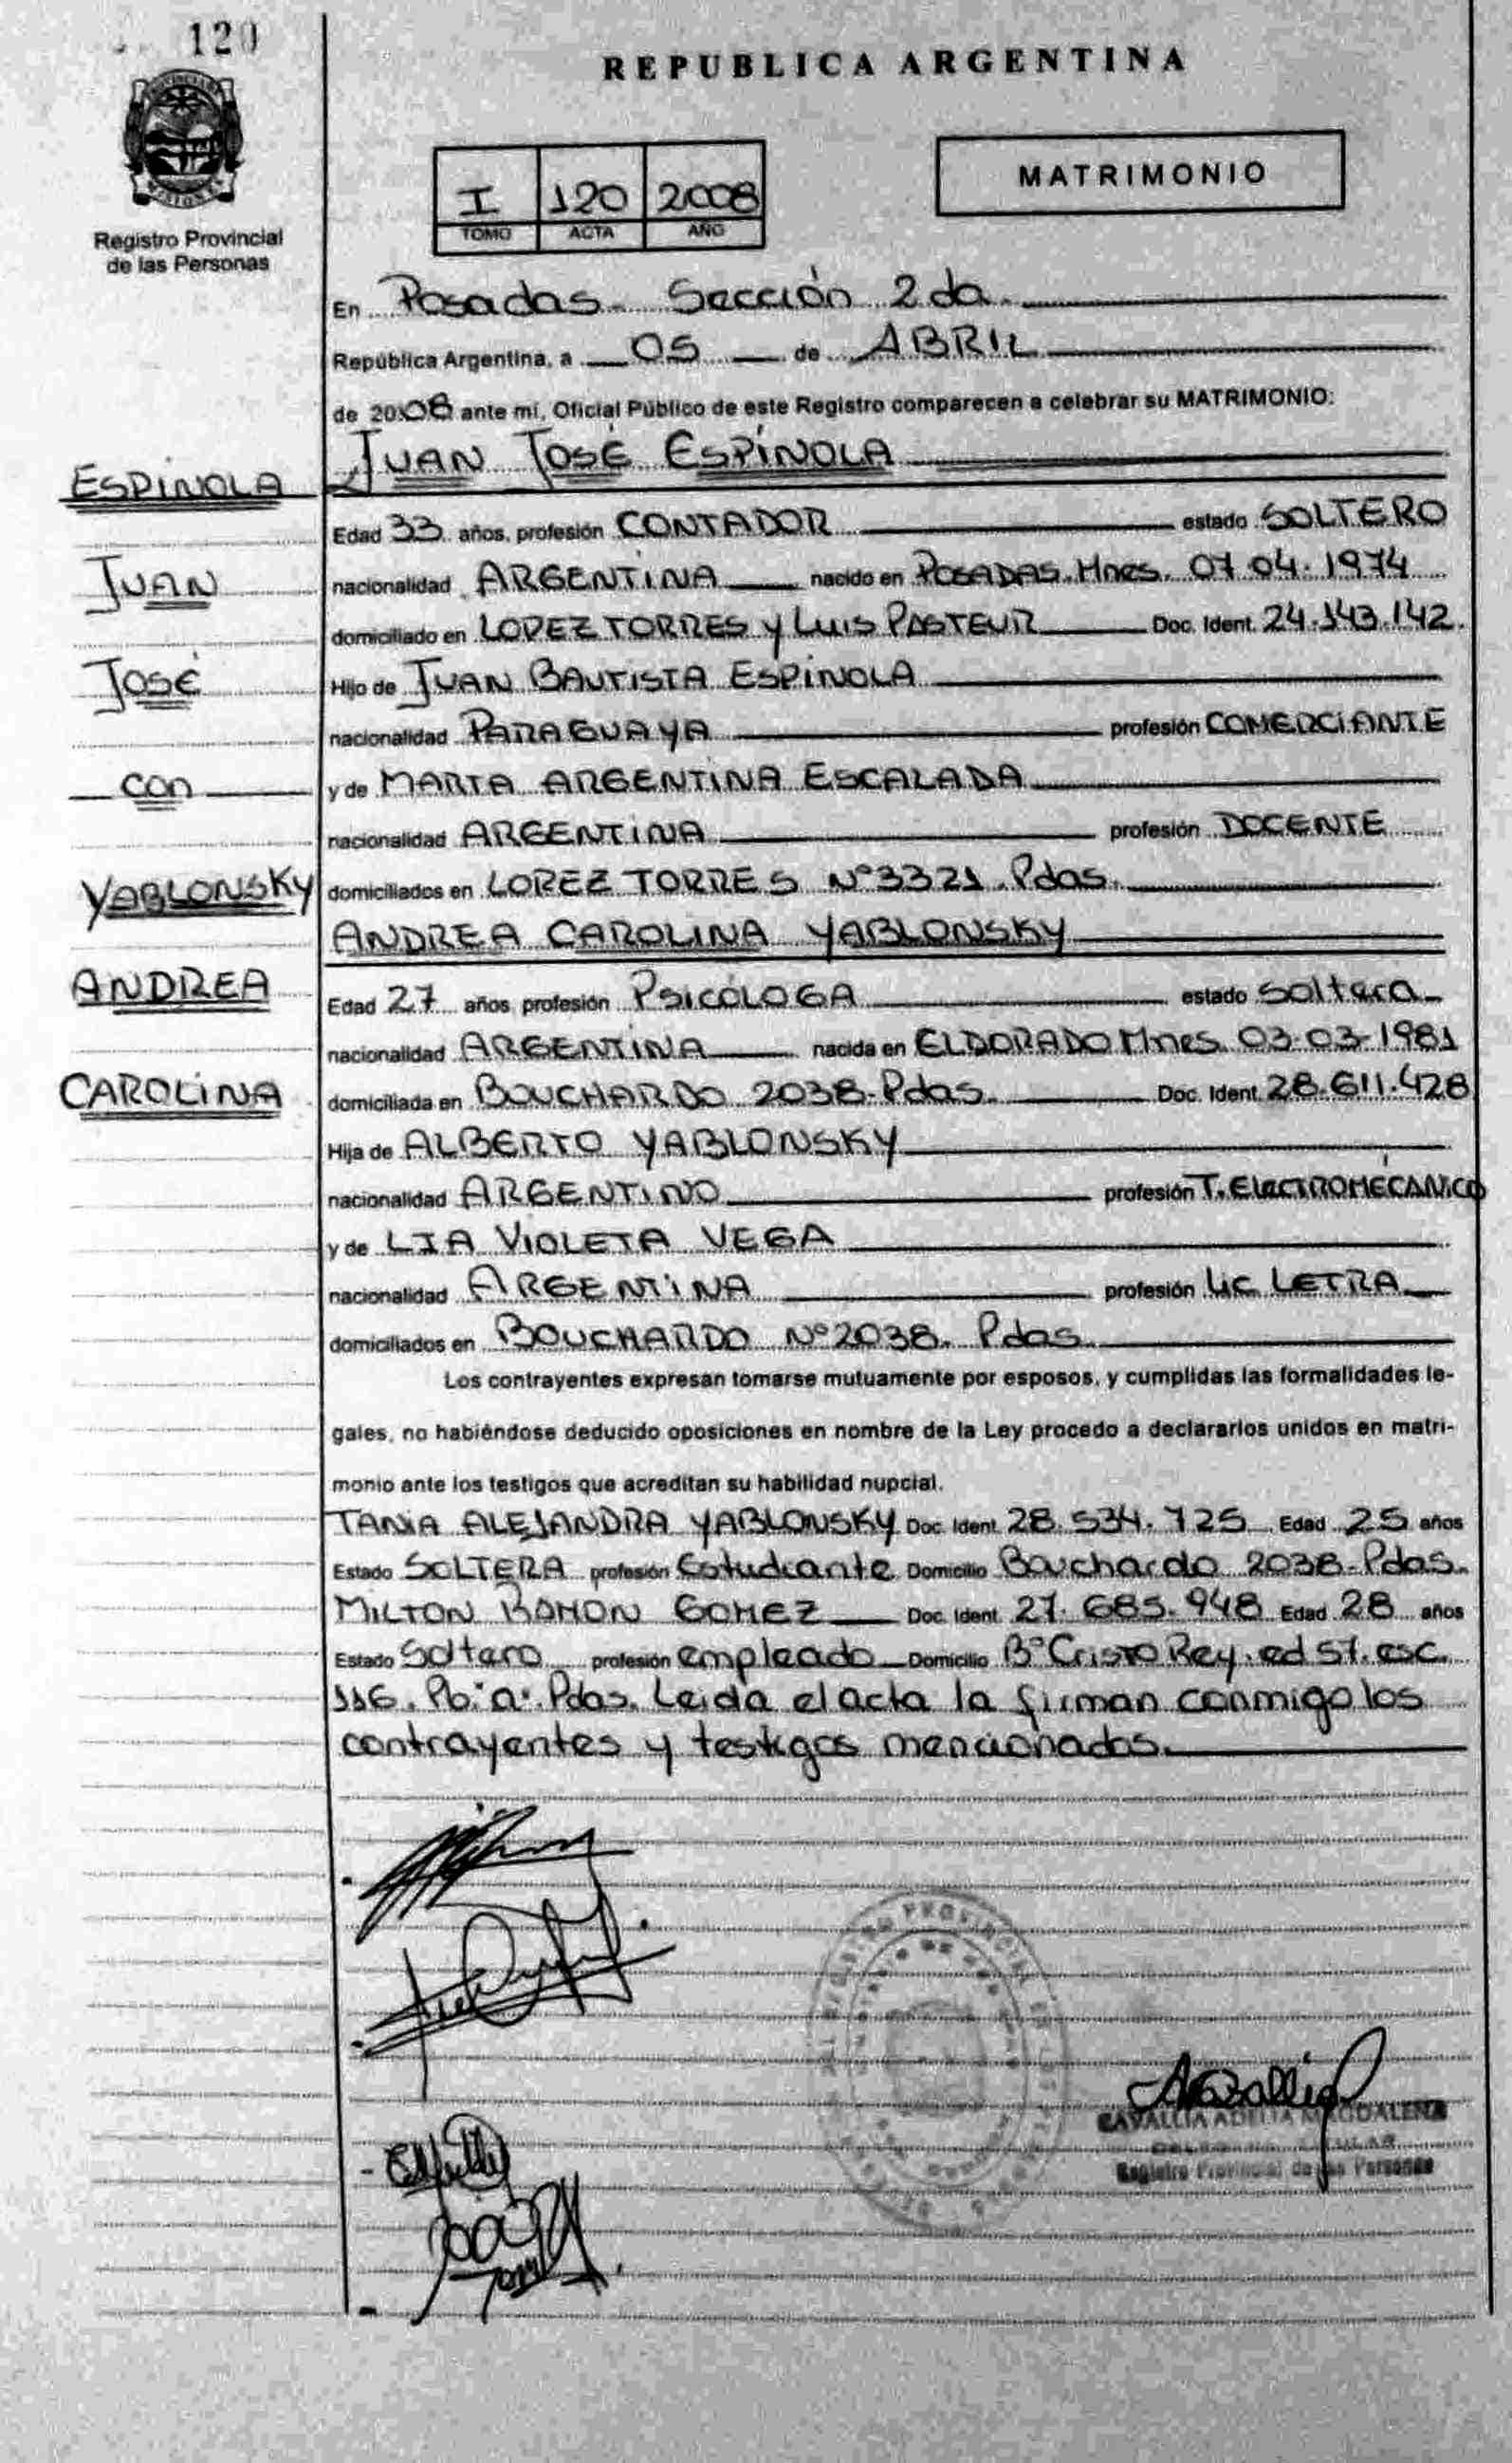 120
REPUBLICA ARGENTINA
MATRIMONIO
I 120 2008
TOMO ACTA AÑO
Registro Provincial
de las Personas
En Posadas - Sección 2 da.
República Argentina, a 05 de ABRIL
de 2008 ante mí, Oficial Público de este Registro comparecen a celebrar su MATRIMONIO:
JUAN JOSÉ ESPÍNOLA
ESPÍNOLA
Edad 33 años, profesión CONTADOR estado SOLTERO
JUAN
nacionalidad ARGENTINA nacido en POSADAS. Mnes. 07.04.1974
domiciliado en LOPEZ TORRES y LUIS PASTEUR Doc. Ident. 24.143.142.
JOSÉ
Hijo de JUAN BAUTISTA ESPÍNOLA
nacionalidad PARAGUAYA profesión COMERCIANTE
con
y de MARTA ARGENTINA ESCALADA
nacionalidad ARGENTINA profesión DOCENTE
YABLONSKY
domiciliados en LOPEZ TORRES Nº3321. Pdas.
ANDREA CAROLINA YABLONSKY
ANDREA
Edad 27 años, profesión PSICÓLOGA estado Soltera
nacionalidad ARGENTINA nacida en ELDORADO Mnes. 03-03-1981
CAROLINA
domiciliada en BOUCHARDO 2038-Pdas. Doc. Ident. 28.611.428
Hija de ALBERTO YABLONSKY
nacionalidad ARGENTINO profesión T. ELECTROMÉCANICO
y de LIA VIOLETA VEGA
nacionalidad ARGENTINA profesión LIC. LETRA
domiciliados en BOUCHARDO Nº2038. Pdas.
Los contrayentes expresan tomarse mutuamente por esposos, y cumplidas las formalidades le-
gales, no habiéndose deducido oposiciones en nombre de la Ley procedo a declararlos unidos en matri-
monio ante los testigos que acreditan su habilidad nupcial.
TANIA ALEJANDRA YABLONSKY Doc. Ident. 28.534.725 Edad 25 años
Estado SOLTERA profesión Estudiante Domicilio Bouchardo 2038-Pdas.
MILTON RAMON GOMEZ Doc. Ident. 27.685.948 Edad 28 años
Estado Soltero profesión empleado Domicilio Bº Cristo Rey. ed 51. esc.
116. Pb: a". Pdas. Leida el acta la firman conmigo los
contrayentes y testigos mencionados.
CAVALLIA ADELIA MAGDALENA
Registro Provincial de las Personas